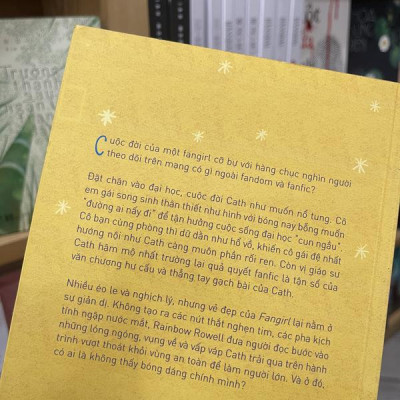 Cuộc đời của một fangirl cỡ bự với hàng chục nghìn người
theo dõi trên mạng có gì ngoài fandom và fanfic?
Đặt chân vào đại học, cuộc đời Cath như muốn nổ tung. Cô
em gái song sinh thân thiết như hình với bóng nay bỗng muốn
“đường ai nấy đi” để tận hưởng cuộc sống đại học “cun ngầu”.
Cô bạn cùng phòng thì dữ dằn như hổ vồ, khiến cô gái đệ nhất
hướng nội như Cath càng muôn phần rối ren. Còn vị giáo sư
Cath hâm mộ nhất trường lại quả quyết fanfic là tận số của
văn chương hư cấu và thẳng tay gạch bài của Cath.
Nhiều éo le và nghịch lý, nhưng vẻ đẹp của Fangirl lại nằm ở
sự giản dị. Không tạo ra các nút thắt nghẹn tim, các pha kịch
tính ngập nước mắt, Rainbow Rowell đưa người đọc bước vào
những lóng ngóng, vụng về và vấp váp Cath trải qua trên hành
trình vượt thoát khỏi vùng an toàn để làm người lớn. Và ở đó,
có ai là không thấy bóng dáng chính mình?